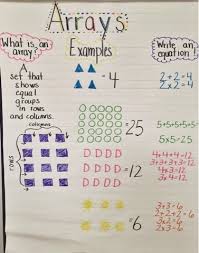 Arrays
What is an
array?
set that
shows
equal
groups
in rows
and columns.
columns
rows
Examples
=4
=25
D D D D
D D D D
D D D D
=12
=6
Write an
equation!
2+2=4
2x2=4
5+5+5+5+5=25
5x5=25
4+4+4=12
3+3+3+3=12
4x3=12
3x4=12
3+3=6
2+2+2=6
3x2=6
2x3=6